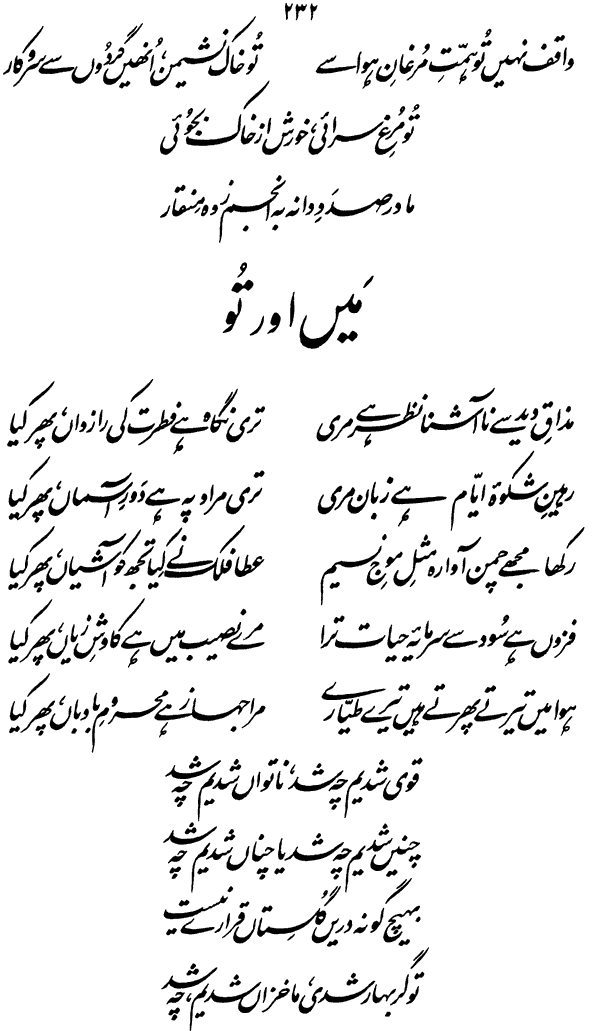 ۲۳۲
واقف نہیں تُو ہمّتِ مُرغانِ ہوا سے تُو خاک نشیمن، اُنھیں گردُوں سے سروکار
تُو مُرغِ سرائی، خورش از خاک بجُوئی
ما در صددِ دانہ بہ انجم زدہ مِنقار
مَیں اور تُو
مذاقِ دید سے ناآشنا نظر ہے مری تری نگاہ ہے فطرت کی رازداں، پھر کیا
رہینِ شکوۂ ایّام ہے زبان مری تری مراد پہ ہے دَورِ آسماں، پھر کیا
رکھا مجھے چمن آوارہ مثلِ موجِ نسیم عطا فلک نے کِیا تجھ کو آشیاں، پھر کیا
فزوں ہے سُود سے سرمایۂ حیات ترا مرے نصیب میں ہے کاوشِ زیاں، پھر کیا
ہوا میں تیرتے پھرتے ہیں تیرے طیّارے مرا جہاز ہے محرومِ بادباں، پھر کیا
قوی شدیم چہ شد، ناتواں شدیم چہ شد
چنیں شدیم چہ شد یا چناں شدیم چہ شد
بہیچ گونہ دریں گُلستاں قرارے نیست
تو گر بہار شدی، ما خزاں شدیم، چہ شد